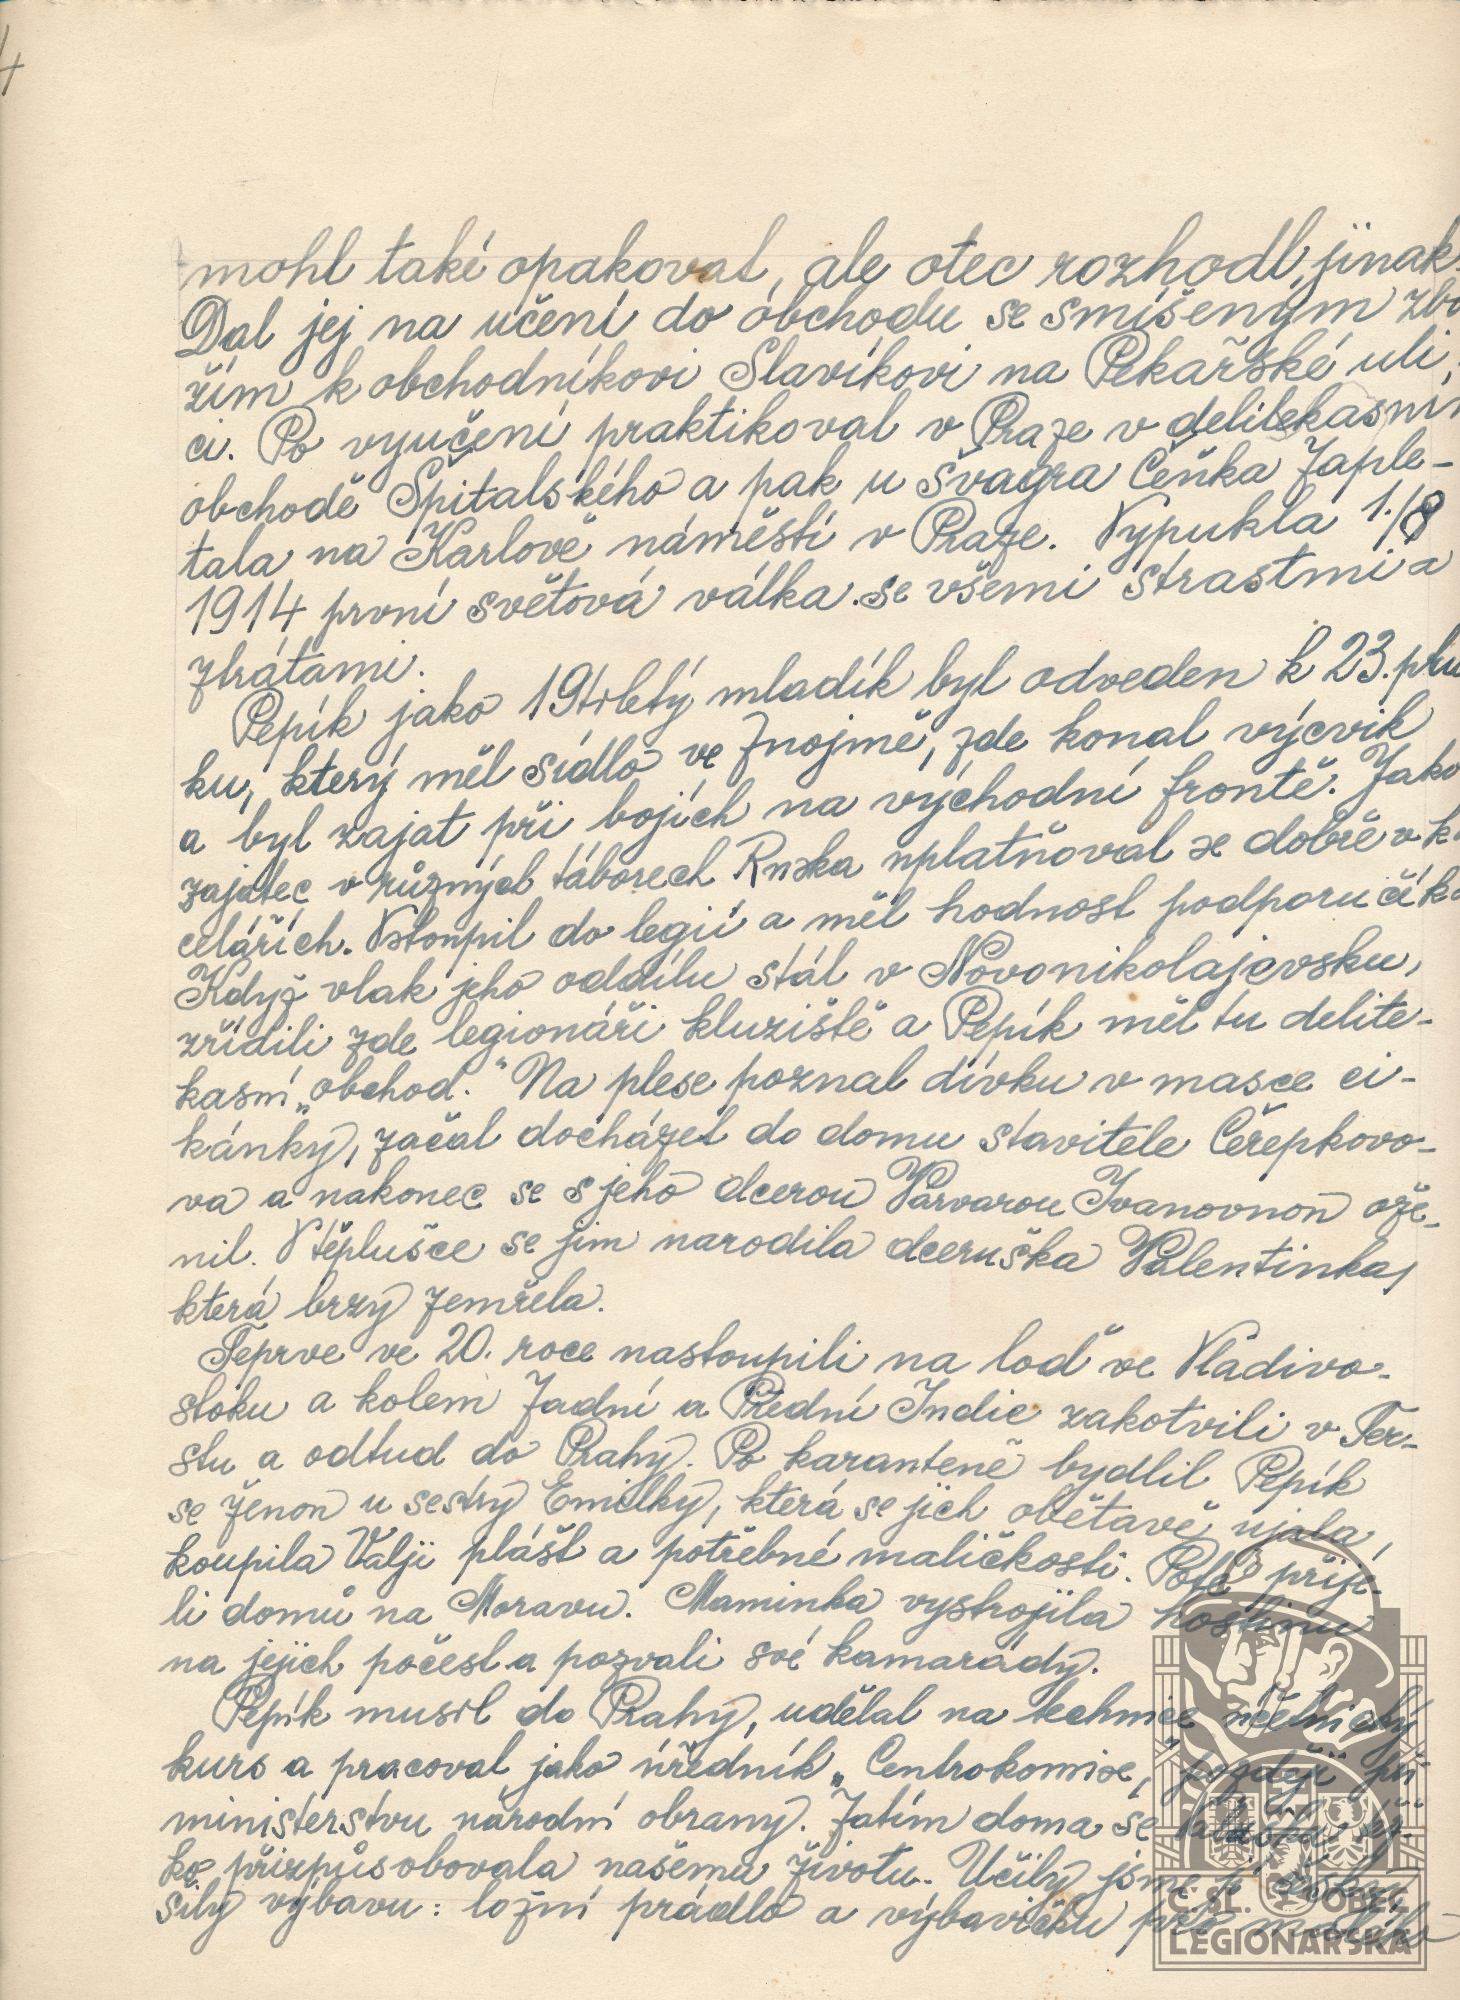 4
mohl také opakovat, ale otec rozhodl, jinak.
Dal jej na učení do obchodu se smíšeným zbo
žím k obchodníkovi Slavíkovi na Pekařské uli,
ci. Po vyučení praktikoval v Praze v delitekasním
obchodě Špitalského a pak u švagra Čeňka Zaple-
tala na Karlově náměstí v Praze. Vypukla 1./8
1914 první světová válka se všemi strastmi a
ztrátami.
Pepík jako 19tiletý mladík byl odveden k 23. plu
ku, který měl sídlo ve Znojmě, zde konal výcvik
a byl zajat při bojích na východní frontě. Jako
zajatec v různých táborech Ruska uplatňoval se dobře v k
celářích. Vstoupil do legií a měl hodnost podporučíka
Když vlak jeho oddílu stál v Novonikolajevsku,
zřídili zde legionáři kluziště a Pepík měl tu delite-
kasní „obchod." Na plese poznal dívku v masce ci-
kánky, začal docházet do domu stavitele Čerepkovo-
va a nakonec se s jeho dcerou Varvarou Ivanovnou ože-
nil. V těplušce se jim narodila dceruška Valentinka,
která brzy zemřela.
Teprve ve 20. roce nastoupili na loď ve Vladivo-
stoku a kolem Zadní a Přední Indie zakotvili v Ter-
stu a odtud do Prahy. Po karanteně bydlil Pepík
se ženou u sestry Emilky, která se jich obětavě ujala,
koupila Valji plášť a potřebné maličkosti. Poté přije-
li domů na Moravu. Maminka vystrojila hostinu
na jejich počest a pozvali své kamarády.
Pepík musil do Prahy, udělal na technice účetnický
kurs a pracoval jako úředník „Centrokomise, později při
ministerstvu národní obrany. Zatím doma se
ko přizpůsobovala našemu životu. Učily jsme ji česky,
šily výbavu: ložní prádlo a výbavičku pro malého
Č. SL. OBEC
LEGIONÁŘSKÁ